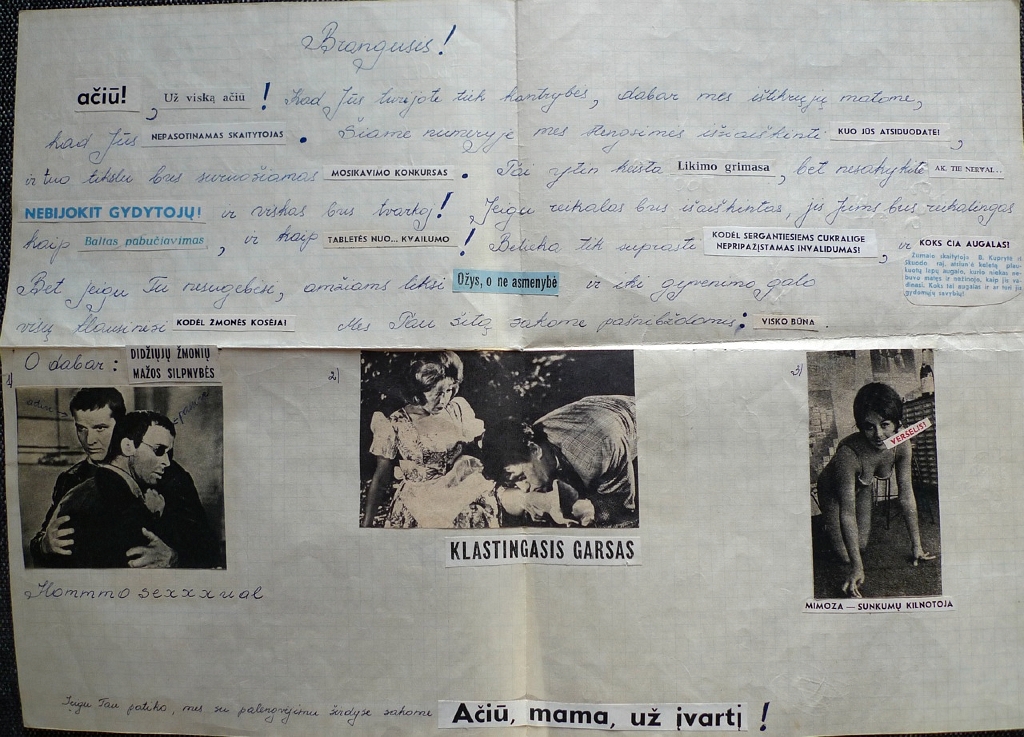 Brangusis!
ačiū!, Už viską ačiū! Kad Jūs turėjote tiek kantrybės, dabar mes ištikrųjų matome,
kad Jūs NEPASOTINAMAS SKAITYTOJAS. Šiame numeryje mes stengsimės išsiaiškinti KUO JŪS ATSIDUODATE!,
ir tuo tikslu bus suruošiamas MOSIKAVIMO KONKURSAS. Tai ypten keista Likimo grimasa, bet nesakykite AK, TIE NERVAI...
NEBIJOKIT GYDYTOJŲ! ir viskas bus tvarkoj! Jeigu reikalas bus išaiškintas, jis Jums bus reikalingas
kaip Baltas pabučiavimas, ir kaip TABLETĖS NUO... KVAILUMO! Belieka tik suprasti KODĖL SERGANTIESIEMS CUKRALIGE NEPRIPAŽĮSTAMAS INVALIDUMAS! ir KOKS ČIA AUGALAS!
Žūmais skaitytoja B. Kuprytė iš
Skuodo raj. atsiuntė keletą plau-
kuotų lapų augalo, kurio niekas ne-
buvo matęs ir nežinojo, kaip jis va-
dinasi. Koks tai augalas ir ar turi jis
gydomųjų savybių?
Bet jeigu Tu nesugebėsi, amžiams liksi Ožys, o ne asmenybė ir iki gyvenimo galo
visų klausinėsi KODĖL ŽMONĖS KOSĖJA! Mes Tau šitą sakome pašnibždomis: VISKO BŪNA.
O dabar: DIDŽIŲJŲ ŽMONIŲ
MAŽOS SILPNYBĖS
1) 2) 3)
VERŠELIS!
KLASTINGASIS GARSAS
Hommmo sexxxual
MIMOZA — SUNKUMŲ KILNOTOJA
Jeigu Tau patiko, mes su palengvėjimu širdyse sakome Ačiū, mama, už įvartį!